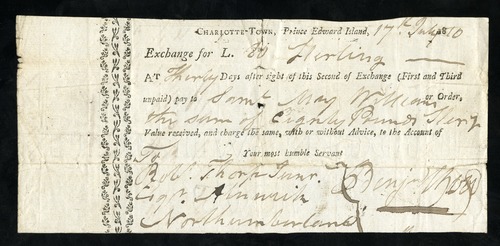 CHARLOTTE-TOWN, Prince Edward Island, 17th July 1810
Exchange for L. 80 Sterling
AT Thirty Days after sight of this Second of Exchange (First and Third
unpaid) pay to Saml May Williams or Order,
the sum of Eighty Pounds Sterg
Value received, and charge the same, with or without Advice, to the Account of
To Your most humble Servant
Robt Thorp Junr Benj
Esqr Alnwick
Northumberland